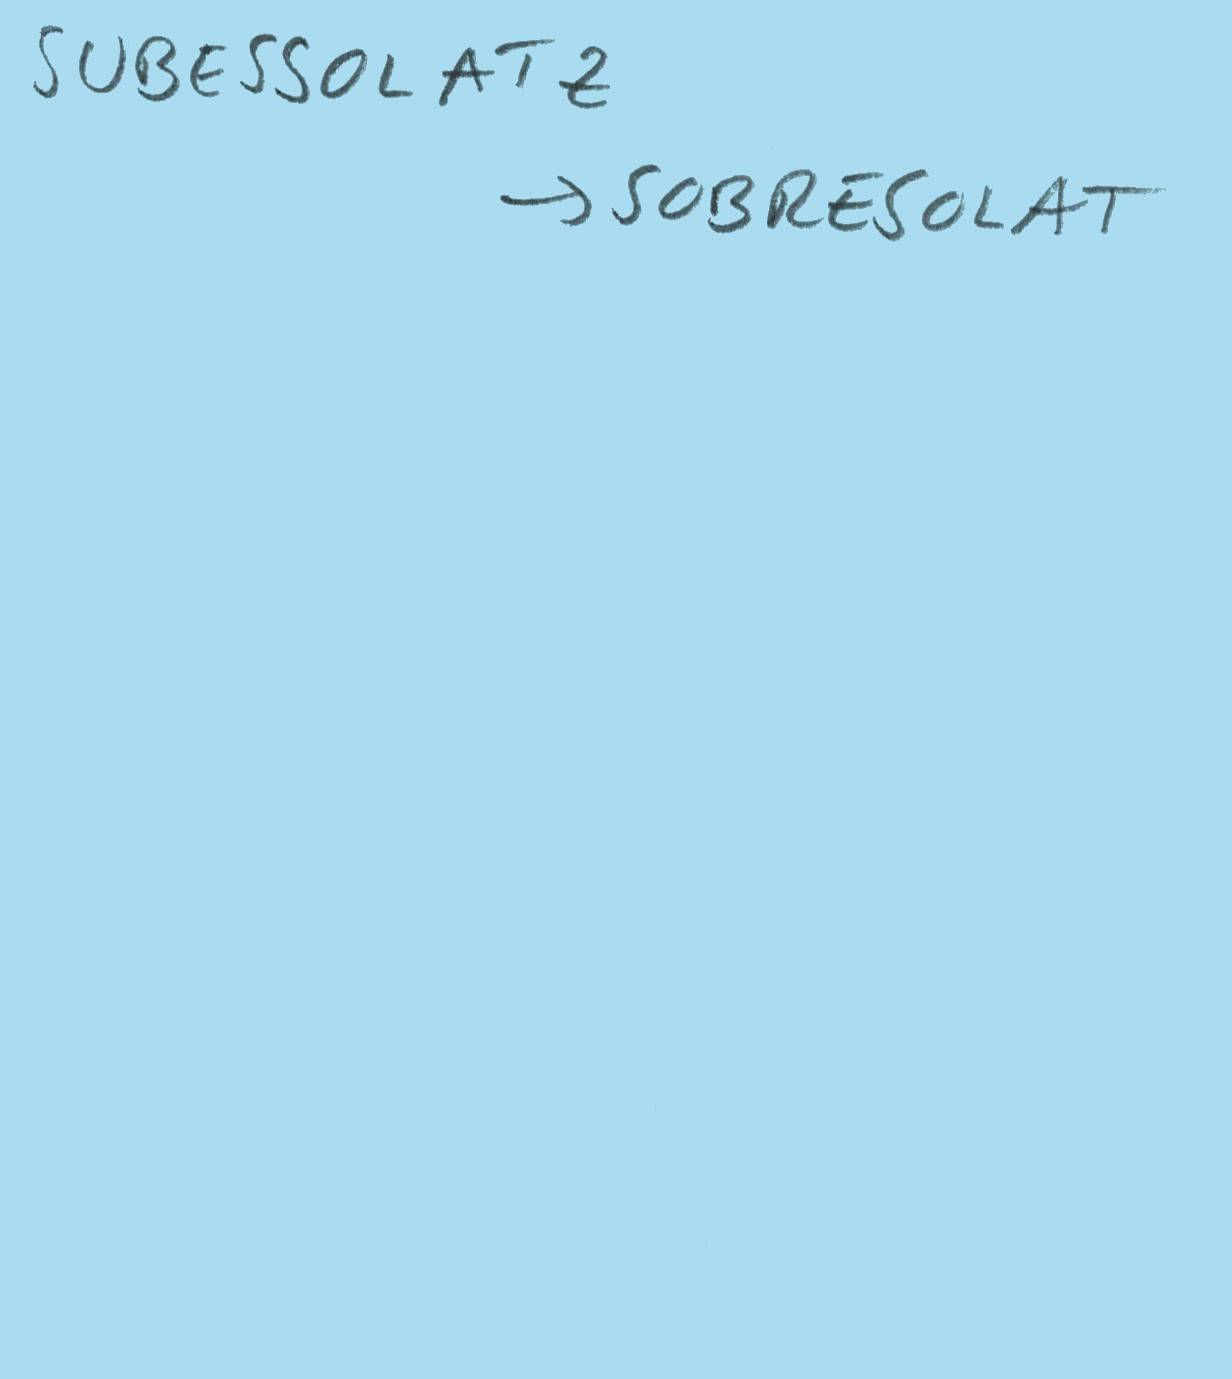 SUBESSOLATZ
→ SOBRESOLAT